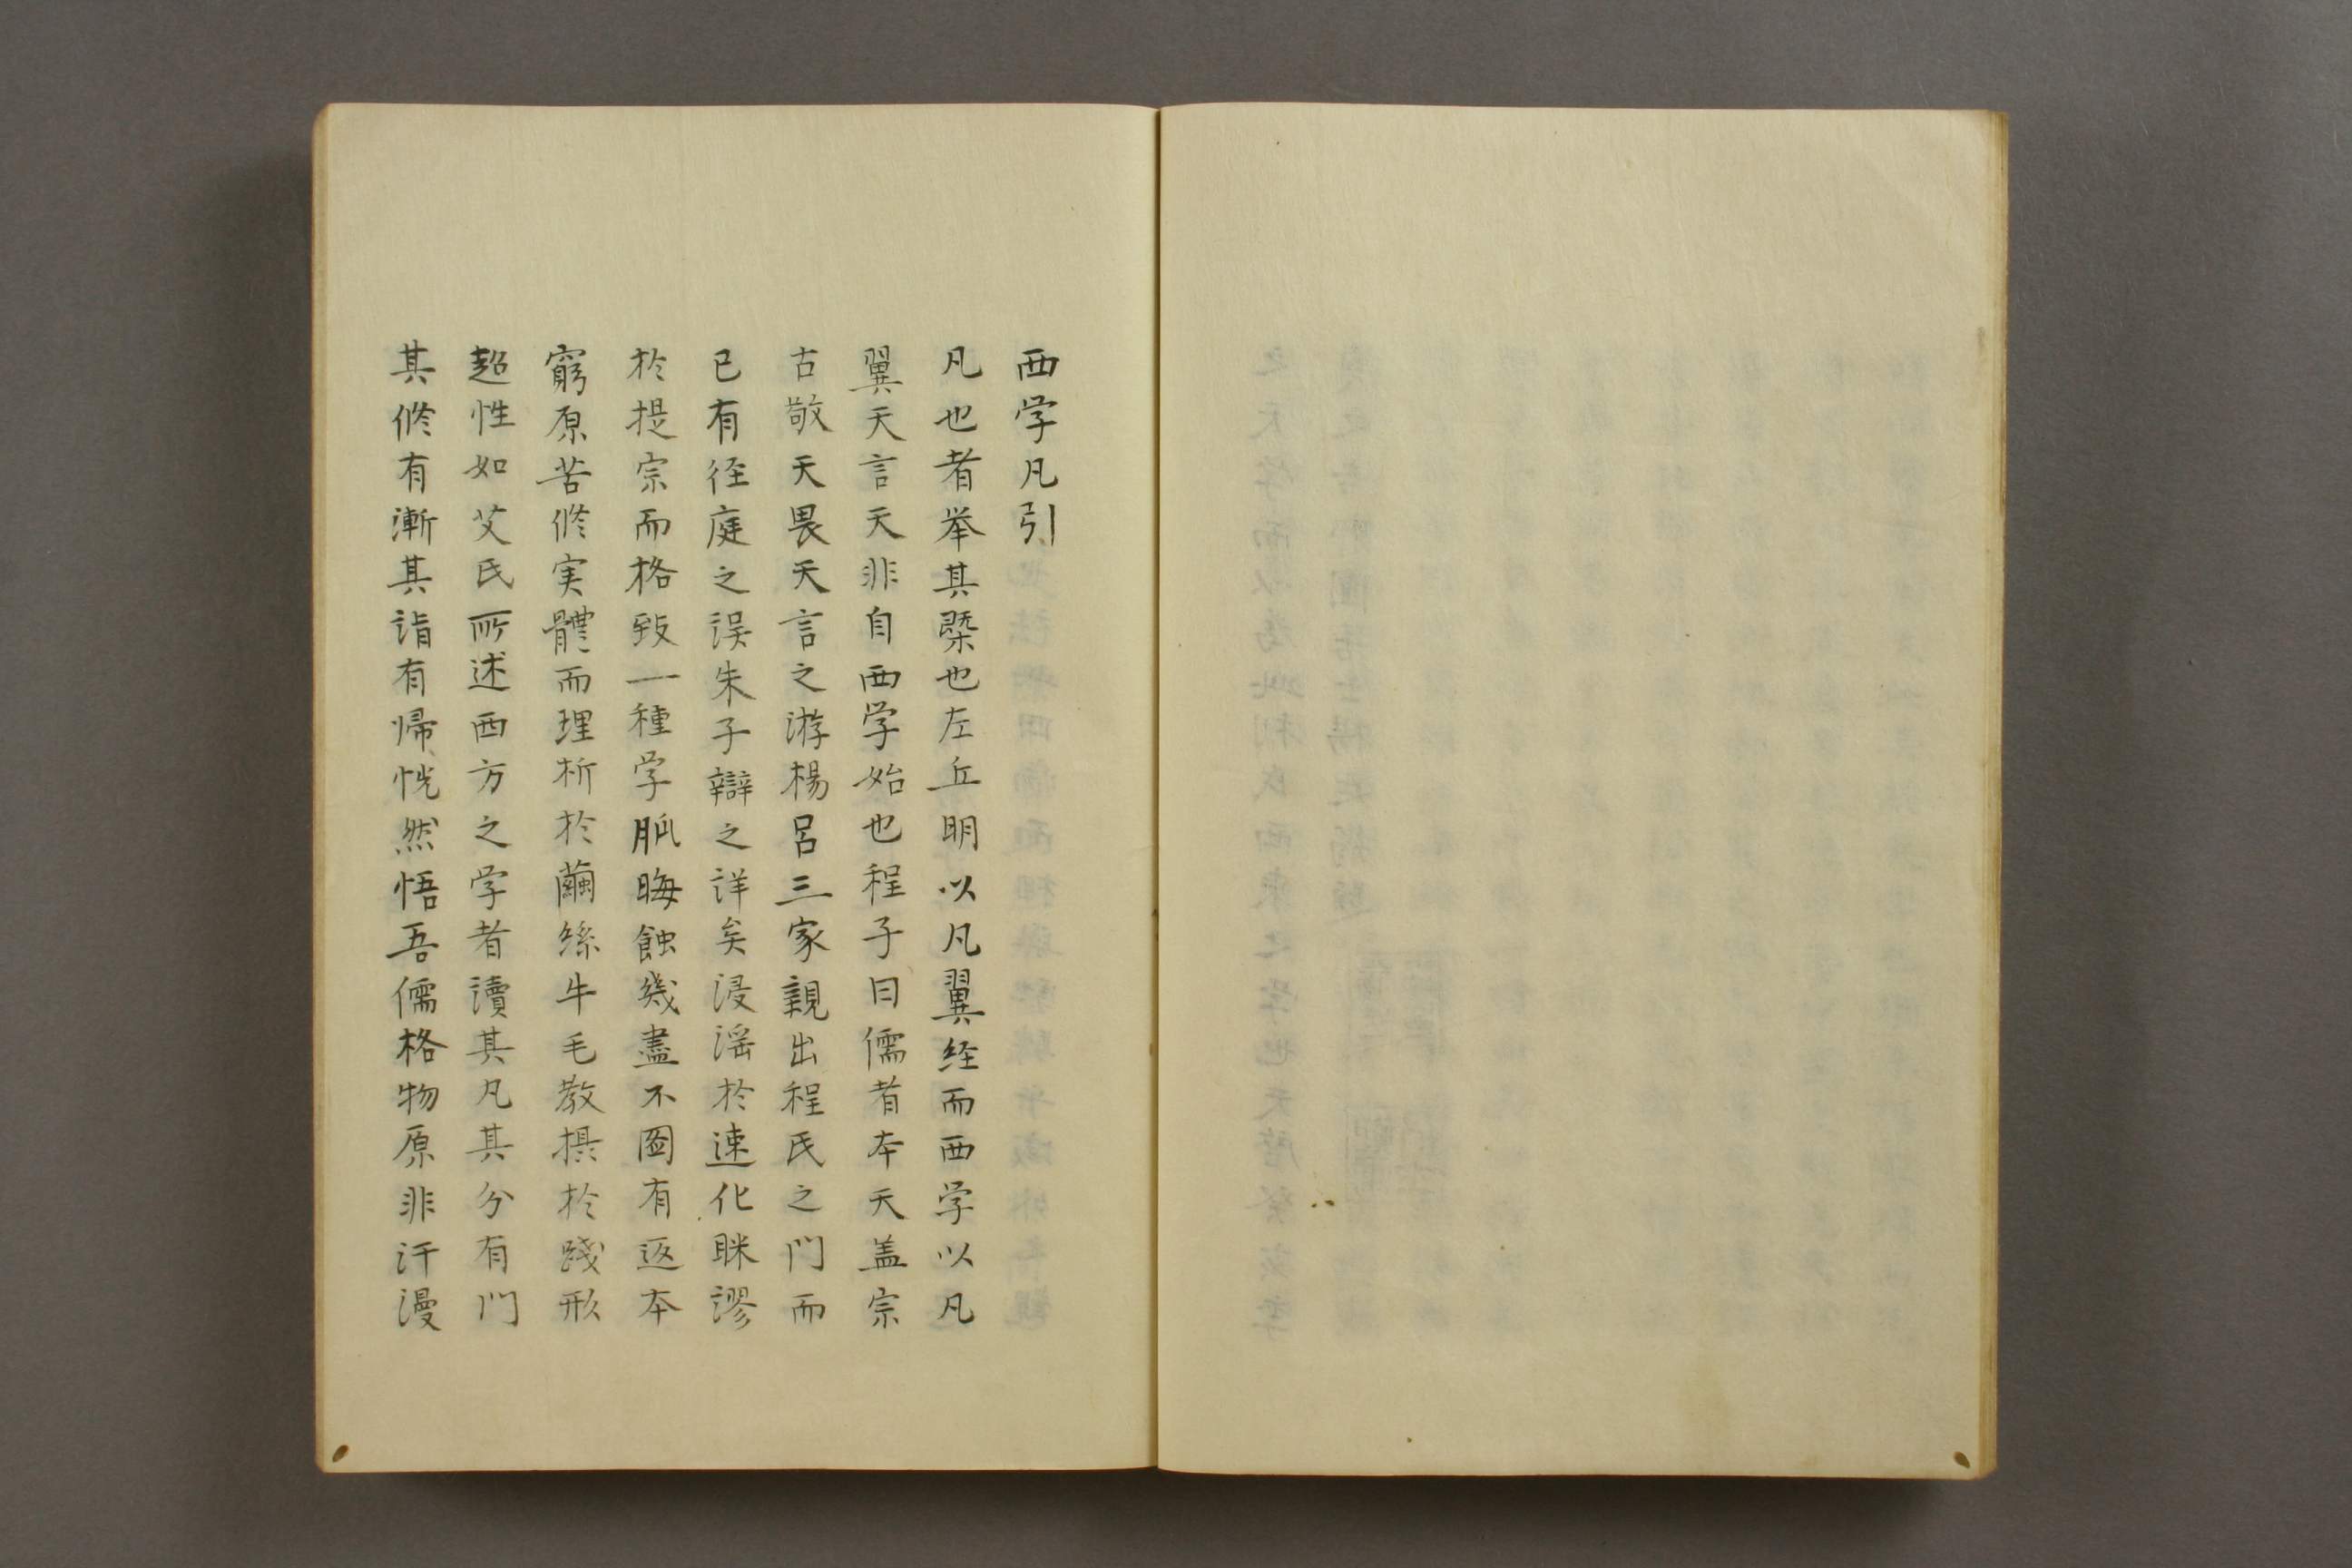 西学凡引
凡也者举其槩也左丘明以凡翼経而西学以凡
翼天言天非自西学始也程子曰儒者本天盖宗
古敬天畏天言之游楊呂三家親出程氏之門而
已有径庭之误朱子辯之詳矣浸滛於速化眯謬
於提宗而格致一種学脈晦蝕幾盡不圖有返本
窮原苦修実體而理析於繭絲牛毛教摂於践形
超性如艾氏所述西方之学者讀其凡其分有門
其修有漸其詣有帰恍然悟吾儒格物原非汗漫